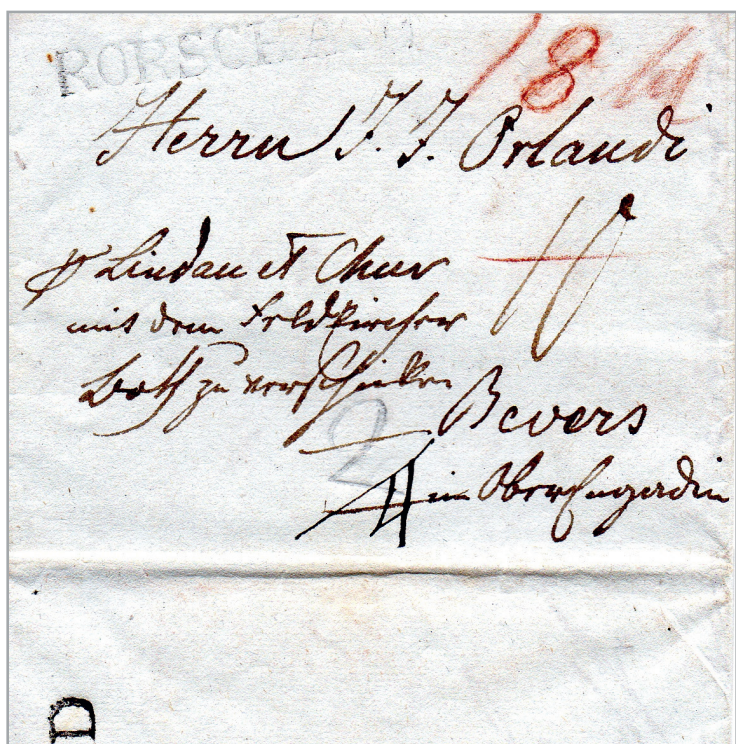 RORSCHACH
18
Herrn J. J. Orlandi
p Lindau et Chur
mit dem Feldkircher
Both zu verschicken
2
Bevers
im Ober Engadin
D